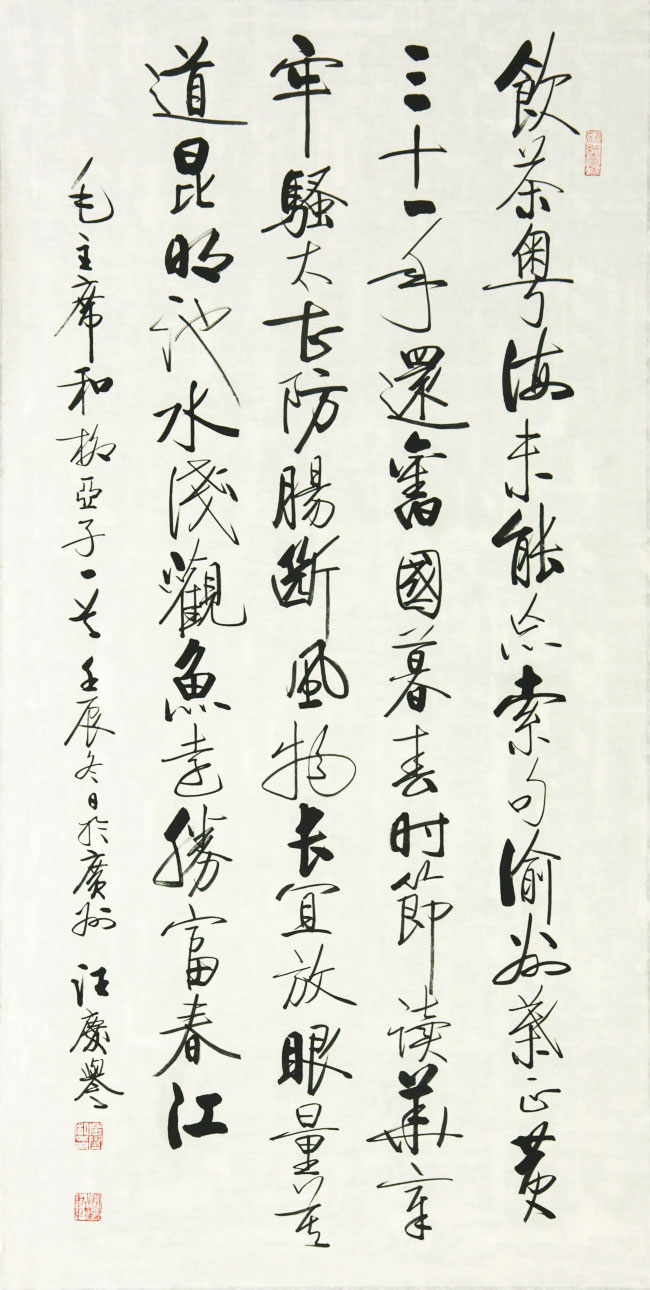 飲茶粵海未能忘索句渝州葉正黄
三十一年還舊國暮春时節读華章
牢騷太甚防腸斷風物长宜放眼量莫
道昆明池水淺觀魚勝富春江
毛主席和柳亞子一首 壬辰冬日於廣州 汪慶譽